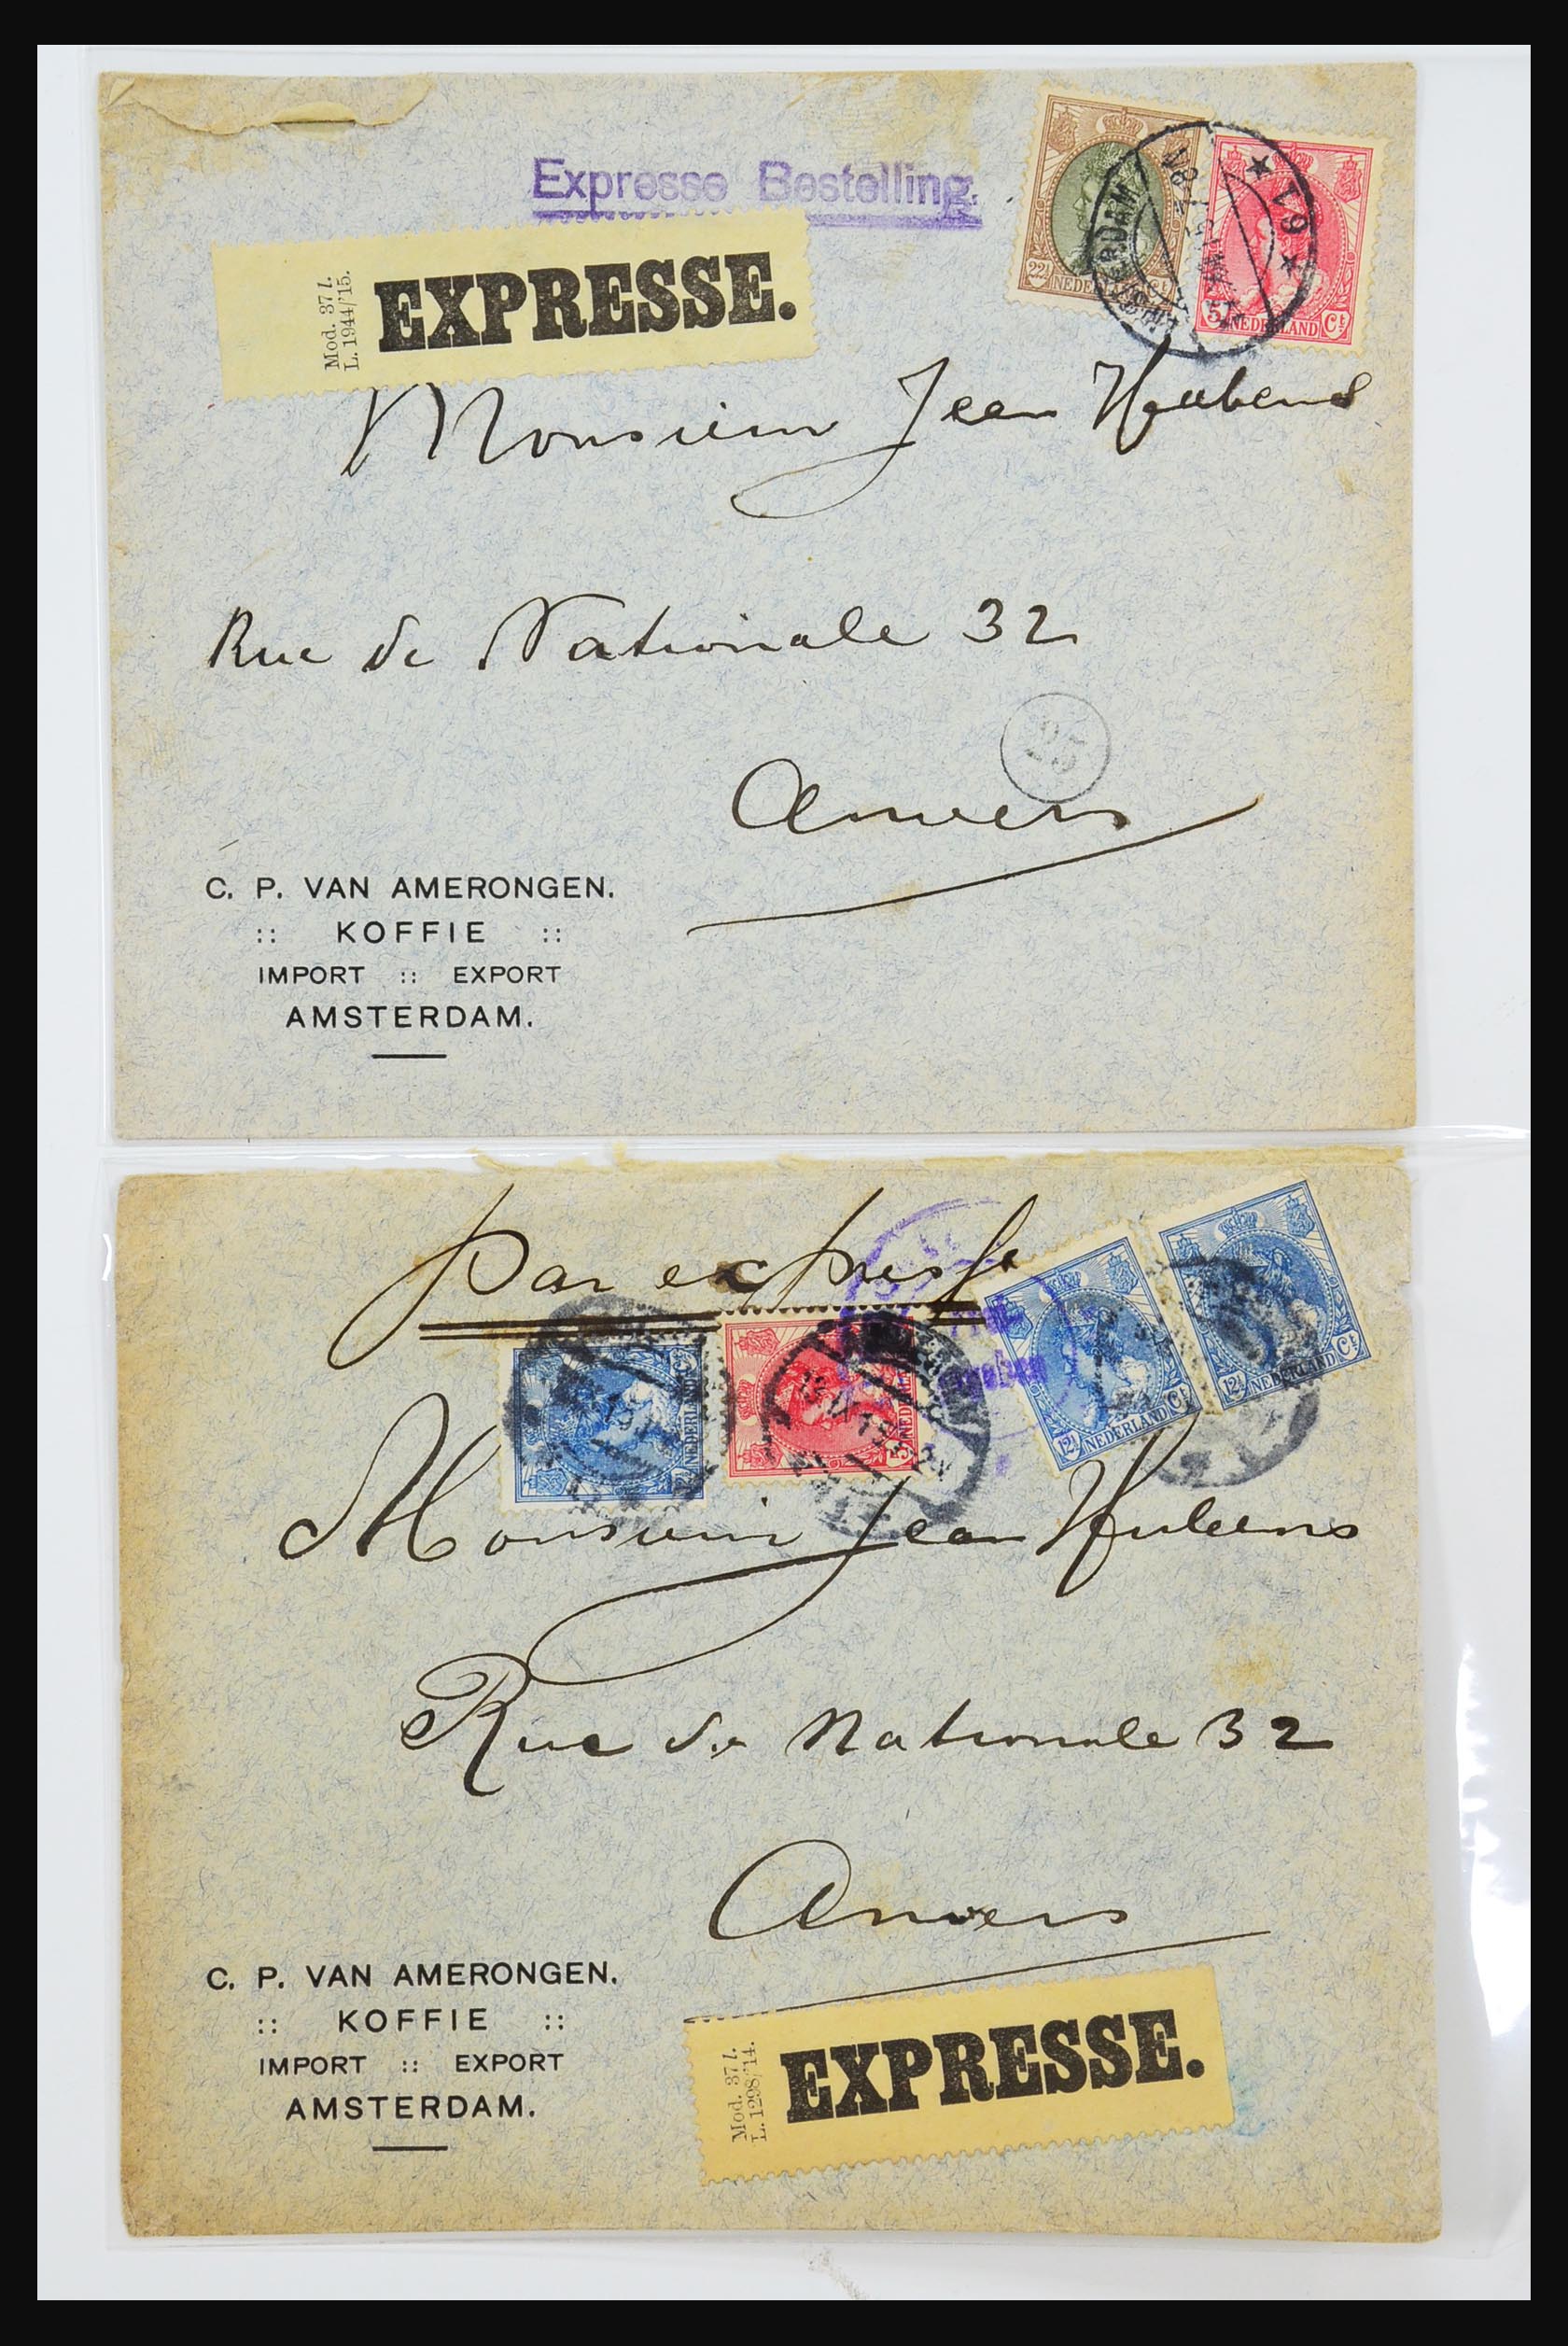 Expresse Bestelling.
Mod. 37 l.
L. 1944/'15.
EXPRESSE.
22½ NEDERLAND Ct
5 NEDERLAND Ct
* 19 *
7-8 N
Monsieur Jean
Rue de Nationale 32
Anvers
C. P. VAN AMERONGEN.
:: KOFFIE ::
IMPORT :: EXPORT
AMSTERDAM.
par expresse
12½ NEDERLAND Ct
5 NEDERLAND
12½ NEDERLAND Ct
12½ NEDERLAND Ct
Monsieur Jean
Rue de Nationale 32
Anvers
C. P. VAN AMERONGEN.
:: KOFFIE ::
IMPORT :: EXPORT
AMSTERDAM.
Mod. 37 l.
L. 1298/'14.
EXPRESSE.